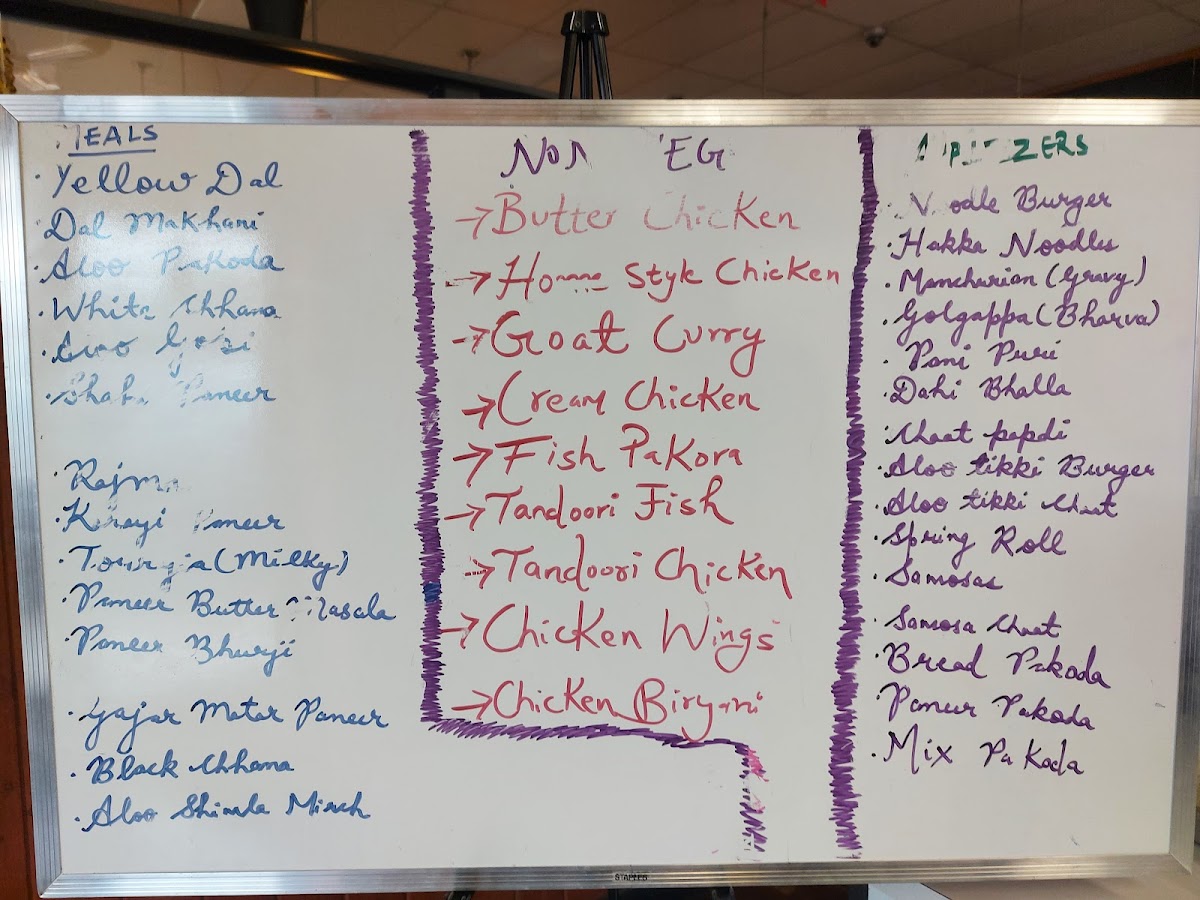 MEALS
Yellow Dal
Dal Makhani
Aloo Pakoda
White Chhana
Aloo Gobi
Shahi Paneer
Rajma
Karayi Paneer
(Milky)
Paneer Butter Masala
Paneer Bhurji
Gajar Matar Paneer
Black Chhana
Aloo Shimla Mirch
NON VEG
→Butter Chicken
→Home Style Chicken
→Goat Curry
→Cream Chicken
→Fish Pakora
→Tandoori Fish
→Tandoori Chicken
→Chicken Wings
→Chicken Biryani
APPETIZERS
Noodle Burger
Hakka Noodles
Manchurian (Gravy)
Golgappa (Bharva)
Pani Puri
Dahi Bhalla
Chaat papdi
Aloo tikki Burger
Aloo tikki Chaat
Spring Roll
Samosas
Samosa Chaat
Bread Pakoda
Paneer Pakoda
Mix Pakoda
STAPLES